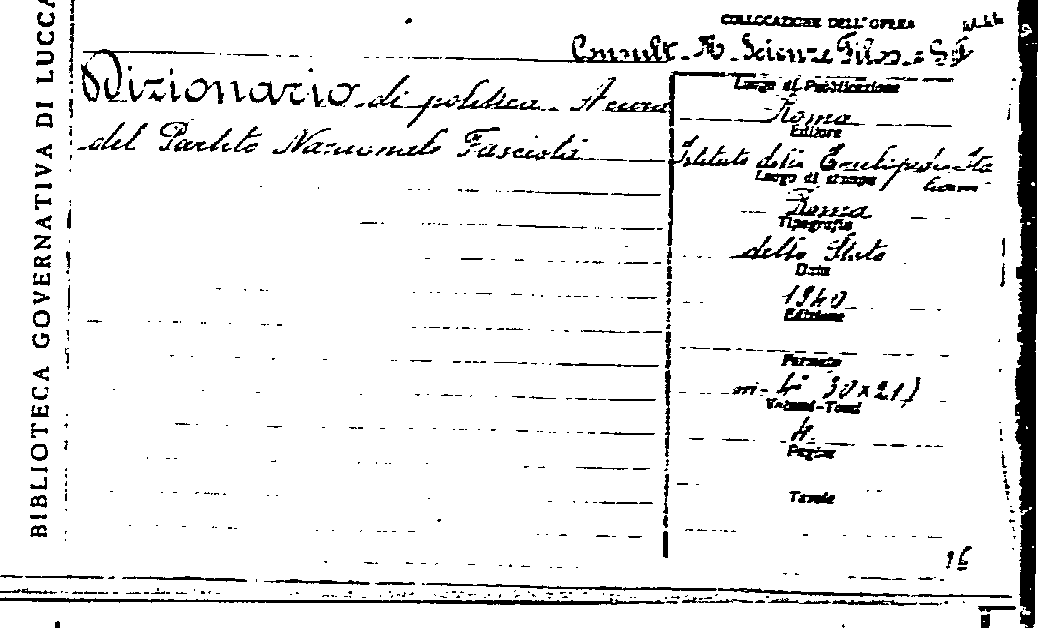 BIBLIOTECA GOVERNATIVA DI LUCCA
COLLOCAZIONE DELL'OPERA
Consult. Scienze Filos.
Dizionario di politica. A cura
del Partito Nazionale Fascista
Luogo di Pubblicazione
Roma
Editore
Istituto della Enciclopedia
Luogo di stampa
Roma
Tipografia
dello Stato
Data
1940
Edizione
Formato
4° 30×21)
Volumi-Tomi
4.
Pagine
Tavole
16